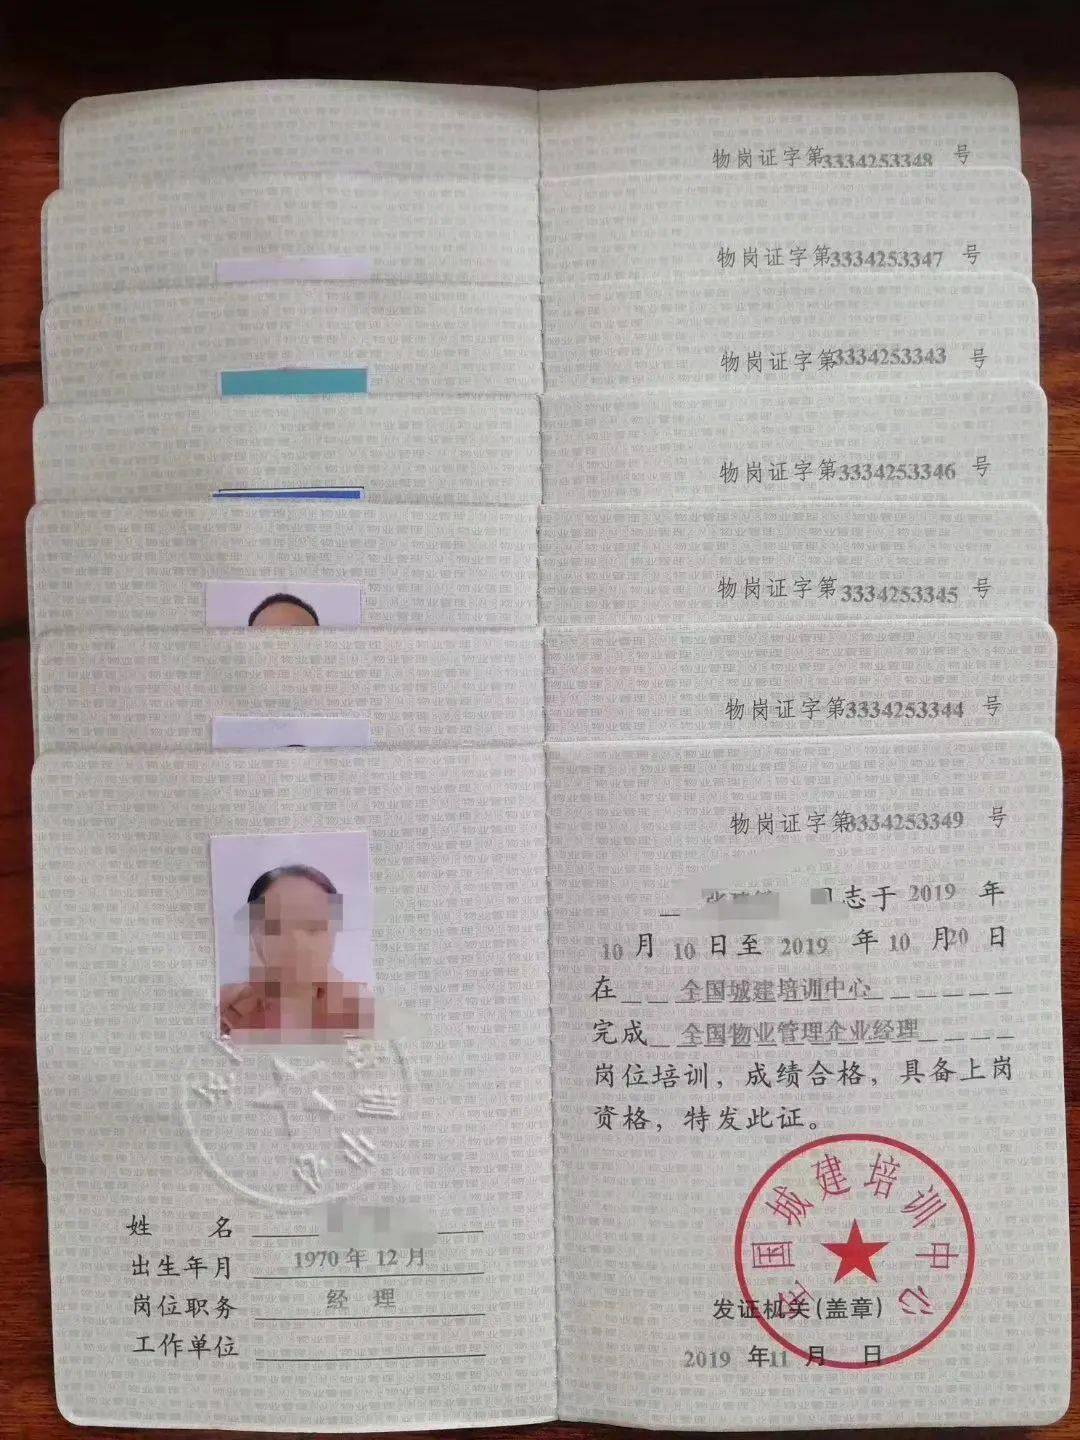 物岗证字第3334253348 号
物岗证字第3334253347 号
物岗证字第3334253343 号
物岗证字第3334253346 号
物岗证字第3334253345 号
物岗证字第3334253344 号
物岗证字第3334253349 号
志于 2019 年
10 月 10 日至 2019 年 10 月20 日
在 全国城建培训中心
完成 全国物业管理企业经理
岗位培训，成绩合格，具备上岗
资格，特发此证。
全国城建培训中心
发证机关(盖章)
2019 年11 月 日
姓 名
出生年月 1970 年 12 月
岗位职务 经 理
工作单位